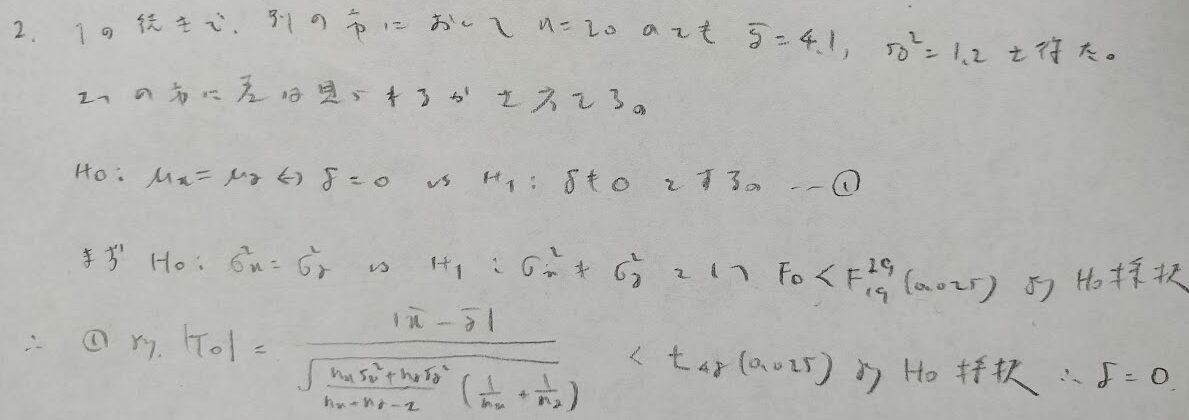 2. 1の続きで、別の市において n=20 のとき ȳ=4.1, sy²=1.2 を得た。
2つの市に差は見られるかを考える。
H0: μx=μy ⇔ δ=0 vs H1: δ≠0 とする。…①
まず H0: σx²=σy² vs H1: σx²≠σy² について F0<F^29_19(0.025) より H0採択
∴ ①より、|T0| = |x̄-ȳ| / √((nx sx²+ny sy²)/(nx+ny-2) (1/nx+1/ny)) < t48(0.025) より H0採択 ∴ δ=0